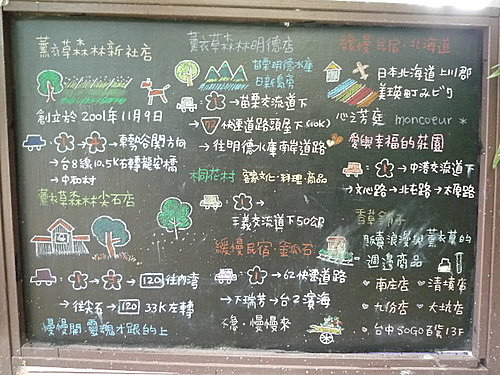 薰衣草森林新社店
創立於2001年11月9日
→東勢谷關方向
→台8線10.5K右轉龍安橋
→中和村
薰衣草森林尖石店
→ 120 往內灣
→往尖石→ 120 33K左轉
慢慢開‧靈魂才跟的上
薰衣草森林明德店
苗栗明德水庫
日新島旁
→苗栗交流道下
→ 72 快速道路頭屋下(10K)
→往明德水庫南岸道路
桐花村 客家文化‧料理‧商品
三義交流道下50公尺
緩慢民宿‧金瓜石
→62快速道路
→下瑞芳→台2濱海
不急‧慢慢來
緩慢民宿‧北海道
日本北海道上川郡
美瑛町みどり
心之芳庭 moncoeur *
愛與幸福的莊園
→中港交流道下
→文心路→北屯路→大原路
香草鋪子
販賣浪漫與薰衣草的
週邊商品
南庄店 清境店
九份店 大坑店
台中SOGO百貨13F